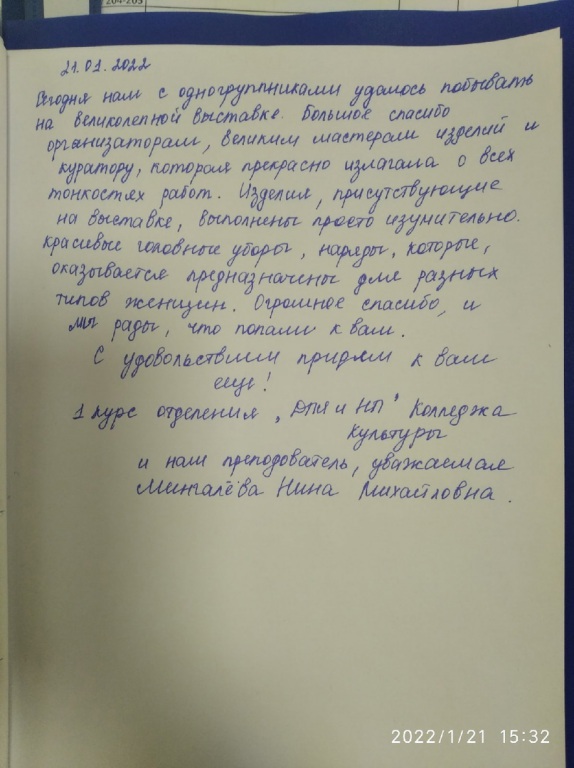 204-205
21.01.2022
Сегодня нам с одногруппниками удалось побывать
на великолепной выставке. Большое спасибо
организаторам, великим мастерам изделий и
куратору, которая прекрасно излагала о всех
тонкостях работ. Изделия, присутствующие
на выставке, выполнены просто изумительно.
Красивые головные уборы, наряды, которые,
оказывается предназначены для разных
типов женщин. Огромное спасибо, и
мы рады, что попали к вам.
С удовольствием придём к вам
еще!
1 курс отделения "ДПИ и НП" Колледжа
Культуры
и наш преподователь, уважаемая
Мингалёва Нина Михайловна.
2022/1/21 15:32